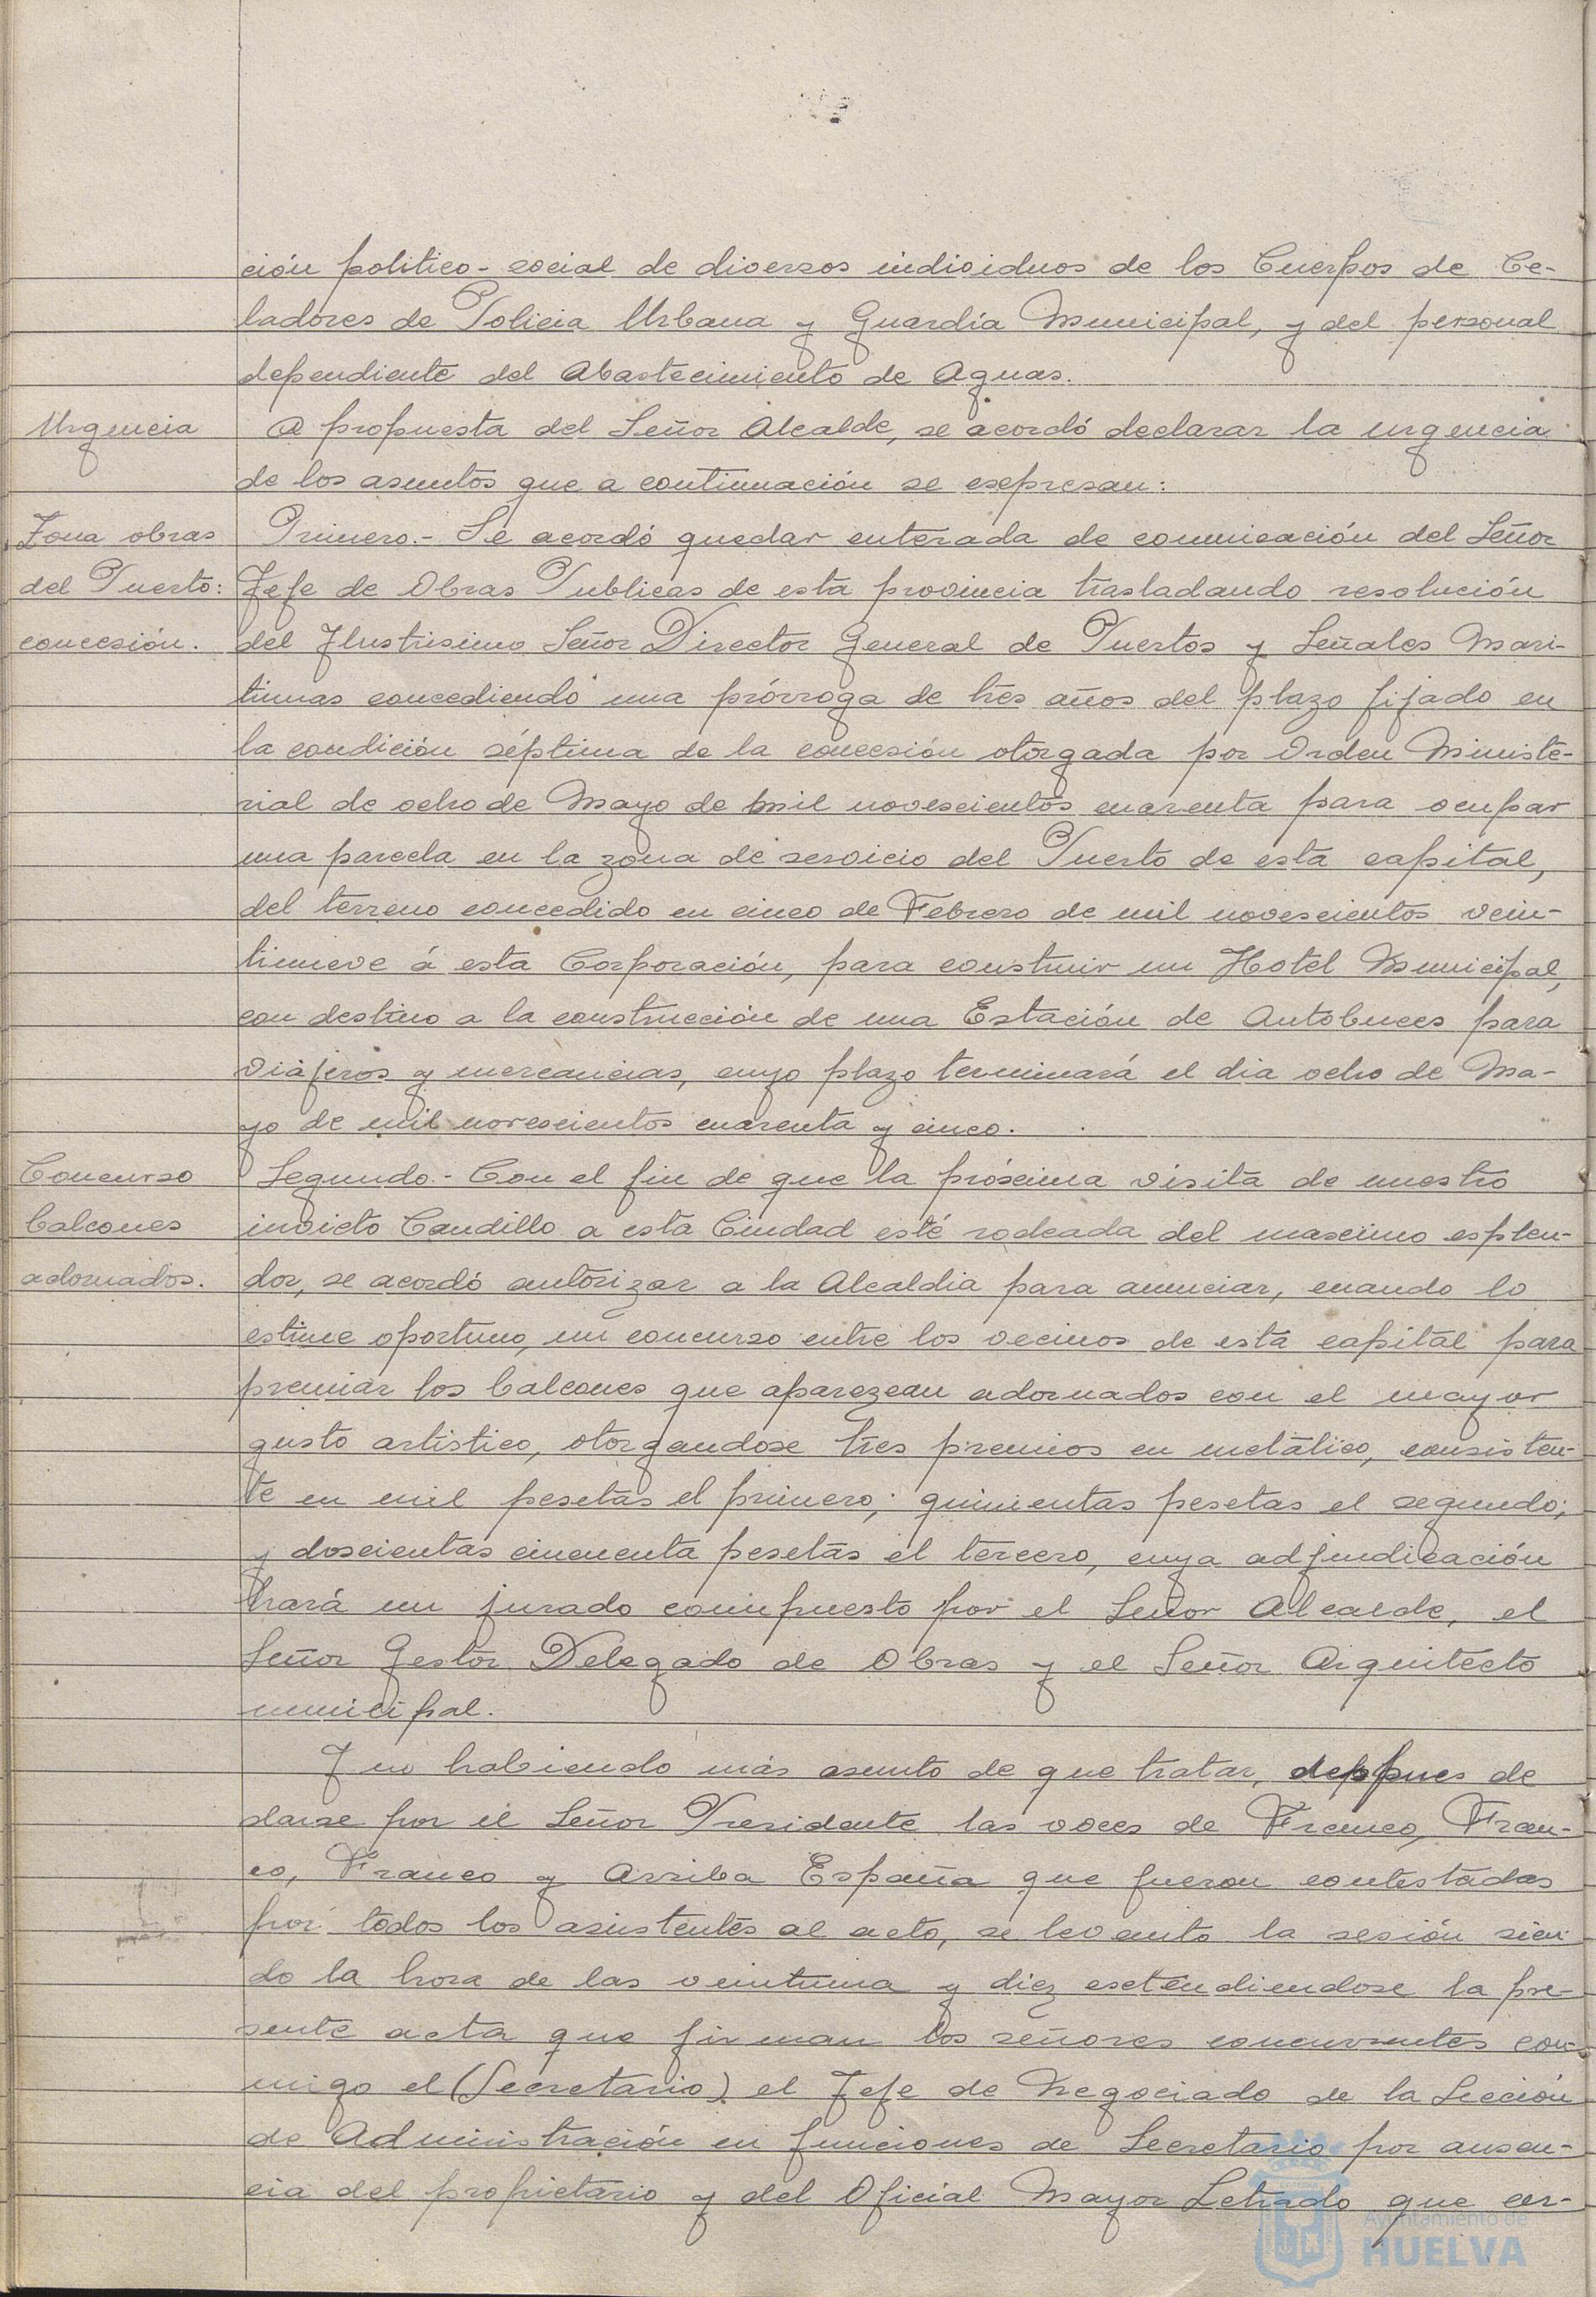 ción politico-social de diversos individuos de los Cuerpos de Ce-
ladores de Policia Urbana y Guardia Municipal, y del personal
dependiente del Abastecimiento de Aguas.
Urgencia
A propuesta del Señor Alcalde, se acordó declarar la urgencia
de los asuntos que a continuación se esepresan:
Zona obras
del Puerto:
concesión.
Primero.- Se acordó quedar enterada de comunicación del Señor
Jefe de Obras Publicas de esta provincia trasladando resolución
del Ilustrisimo Señor Director General de Puertos y Señales Mari-
timas concediendo una prórroga de tres años del plazo fijado en
la condición séptima de la concesión otorgada por Orden Ministe-
rial de ocho de Mayo de mil novescientos cuarenta para ocupar
una parcela en la zona de servicio del Puerto de esta capital,
del terreno concedido en cinco de Febrero de mil novescientos vein-
tinueve á esta Corporación, para construir un Hotel Municipal,
con destino a la construcción de una Estación de Autobuces para
viajeros y mercancias, cuyo plazo terminará el dia ocho de Ma-
yo de mil novescientos cuarenta y cinco.
Concurso
balcones
adornados.
Segundo.- Con el fin de que la próseima visita de nuestro
invicto Caudillo a esta Ciudad esté rodeada del maseimo esplen-
dor, se acordó autorizar a la Alcaldia para anunciar, cuando lo
estime oportuno, un concurso entre los vecinos de esta capital para
premiar los balcones que aparezcan adornados con el mayor
gusto artistico, otorgandose tres premios en metálico, consisten-
te en mil pesetas el primero; quinientas pesetas el segundo;
y doscientas cincuenta pesetas el tercero, cuya adjundicación
hará un jurado compuesto por el Señor Alcalde, el
Señor Gestor Delegado de Obras y el Señor Arquitecto
municipal.
Y no habiendo más asunto de que tratar, deppues de
darse por el Señor Presidente las voces de Franco, Fran-
co, Franco y Arriba España que fueron contestadas
por todos los asistentes al acto, se levanto la sesión sien-
do la hora de las veintiuna y diez esetendiendose la pre-
sente acta que firman los señores concurrentes con-
migo el (Secretario) el Jefe de Negociado de la Sección
de Administración en funciones de Secretario por ausen-
cia del propietario y del Oficial Mayor Letrado que cer-
Ayuntamiento de
HUELVA